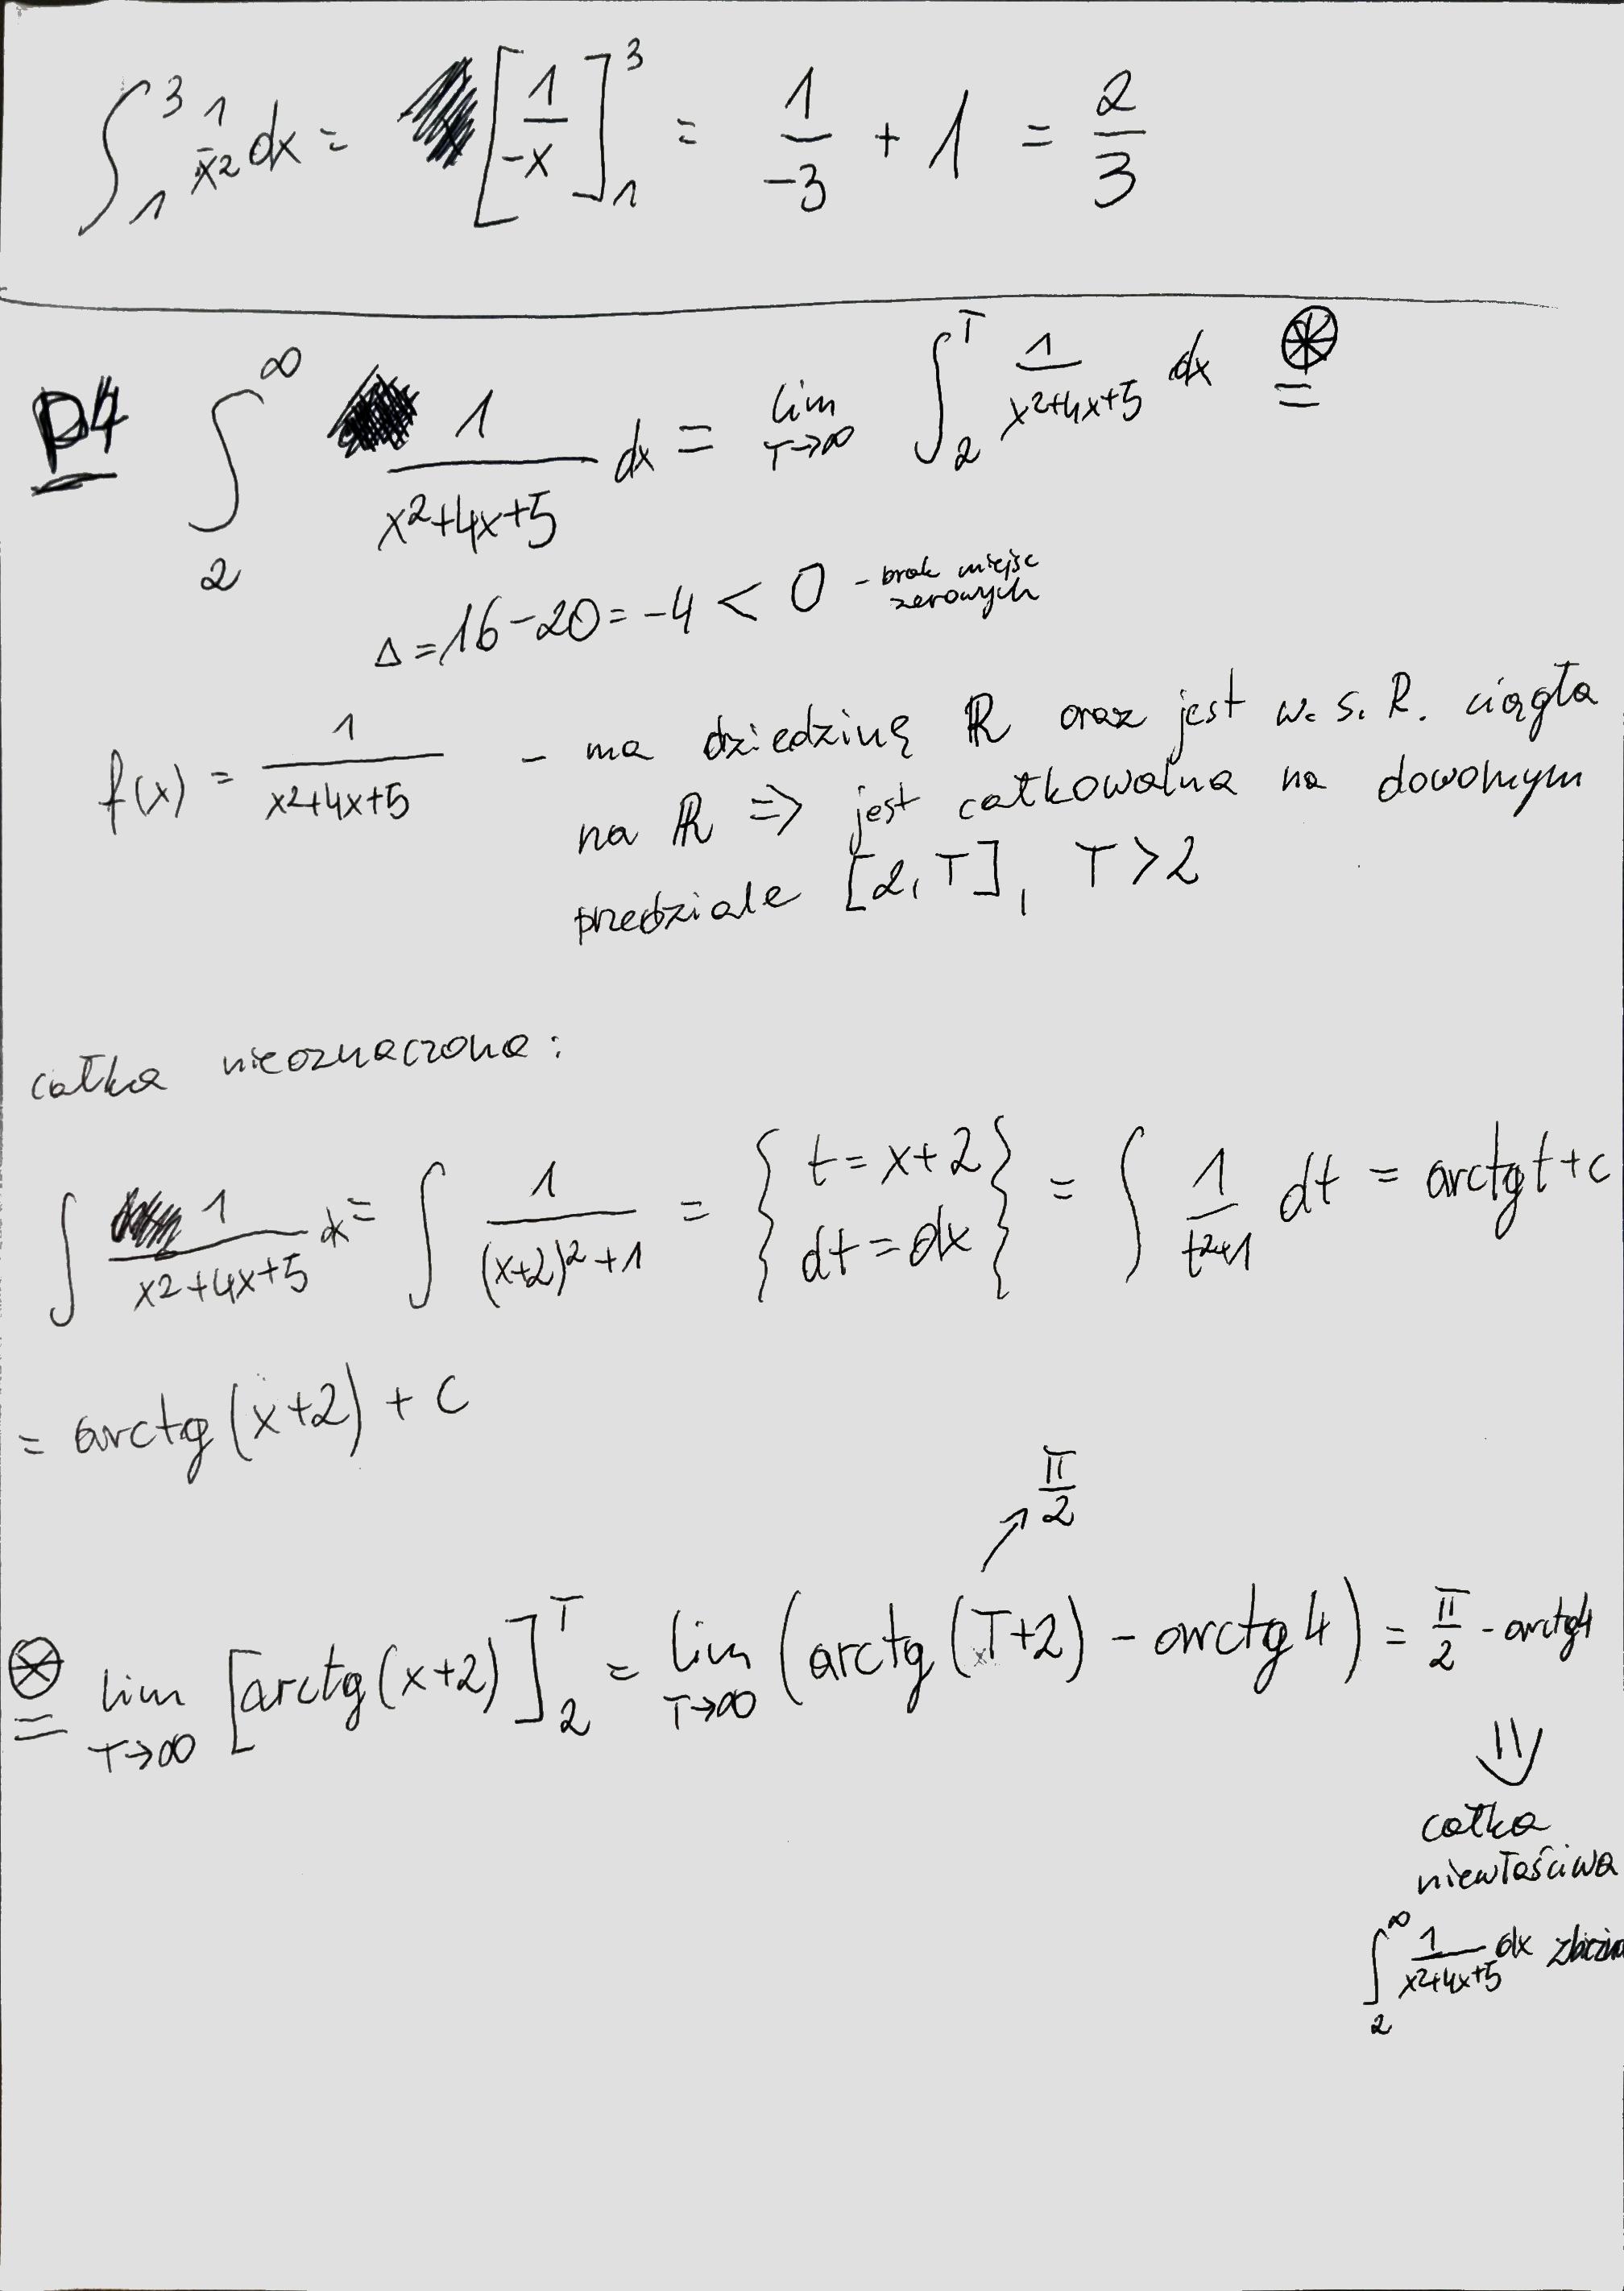 ∫₁³ 1/x² dx = [1/-x]₁³ = 1/-3 + 1 = 2/3
P4 ∫₂^∞ 1/(x²+4x+5) dx = lim T→∞ ∫₂^T 1/(x²+4x+5) dx ⊛=
Δ = 16-20 = -4 < 0 - brak miejsc
zerowych
f(x) = 1/(x²+4x+5) - ma dziedzinę ℝ oraz jest w. s. R. ciągła
na ℝ ⇒ jest całkowalna na dowomym
przedziale [2, T], T>2
całka nieoznaczona:
∫ 1/(x²+4x+5) dx = ∫ 1/((x+2)²+1) = {t = x+2 dt = dx} = ∫ 1/(t²+1) dt = arctg t + c
= arctg (x+2) + c
π/2
⊗= lim T→∞ [arctg(x+2)]₂^T = lim T→∞ (arctg (T+2) - arctg 4) = π/2 - arctg4
⇓
całka
niewłaściwa
∫₂^∞ 1/(x²+4x+5) dx